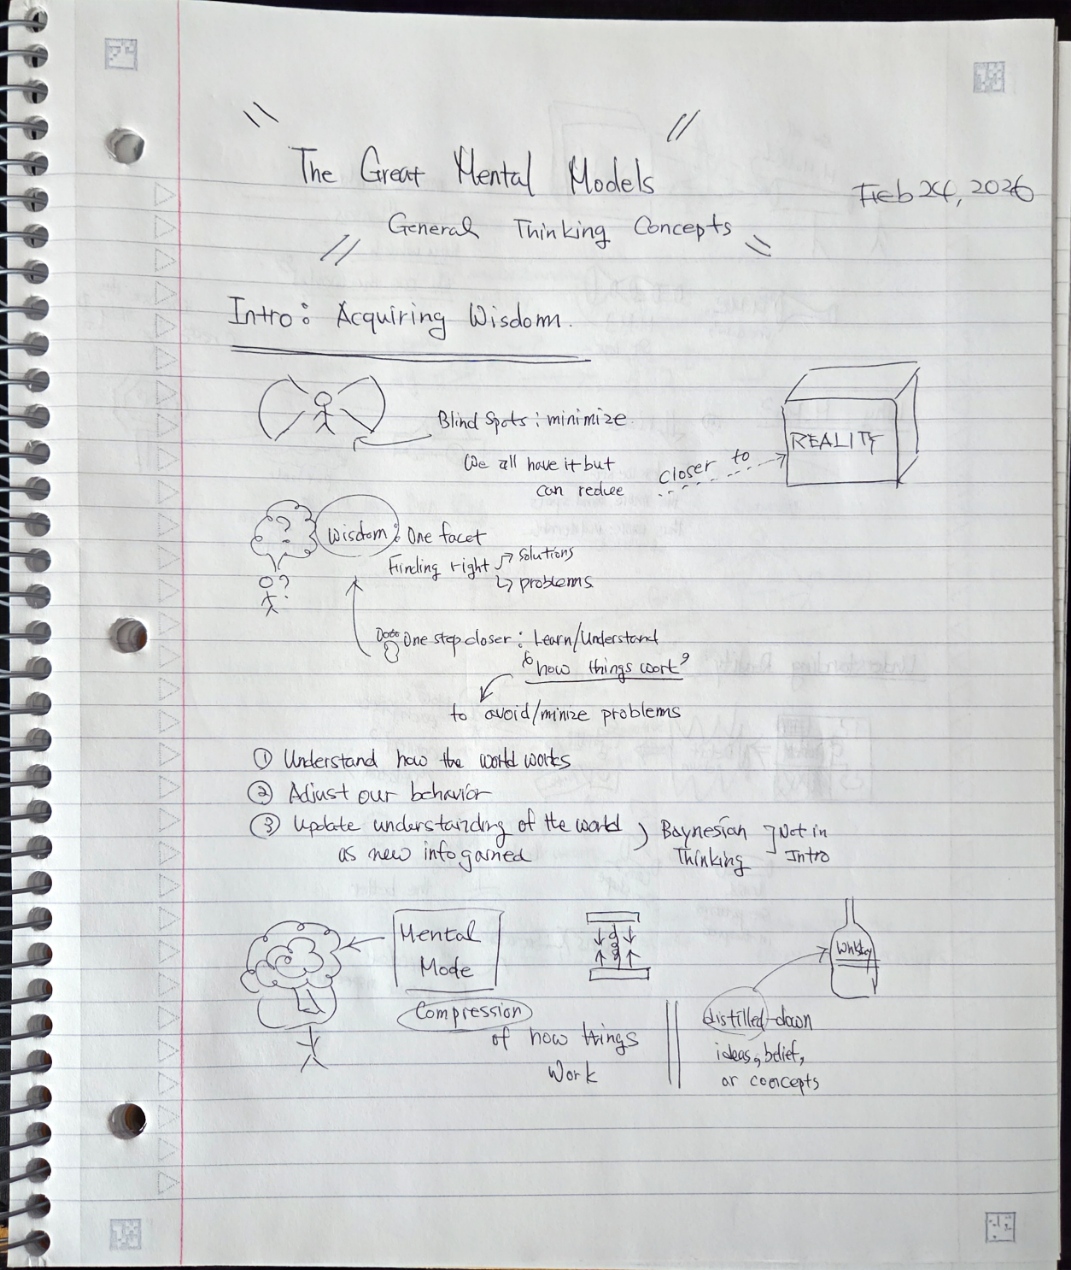 The Great Mental Models
Feb 24, 2026
General Thinking Concepts
Intro: Acquiring Wisdom.
Blind Spots: minimize
We all have it but
can reduce
closer to
REALITY
? ?
?
Wisdom: One facet
Finding right solutions
problems
??
One step closer: Learn/Understand
"how things work"
to avoid/minize problems
① Understand how the world works
② Adjust our behavior
③ Update understanding of the world
as new info gained
Baynesian
Thinking
Not in
Intro
Mental
Mode
Compression
of how things
Work
Whiskey
distilled-down
ideas, belief,
or concepts